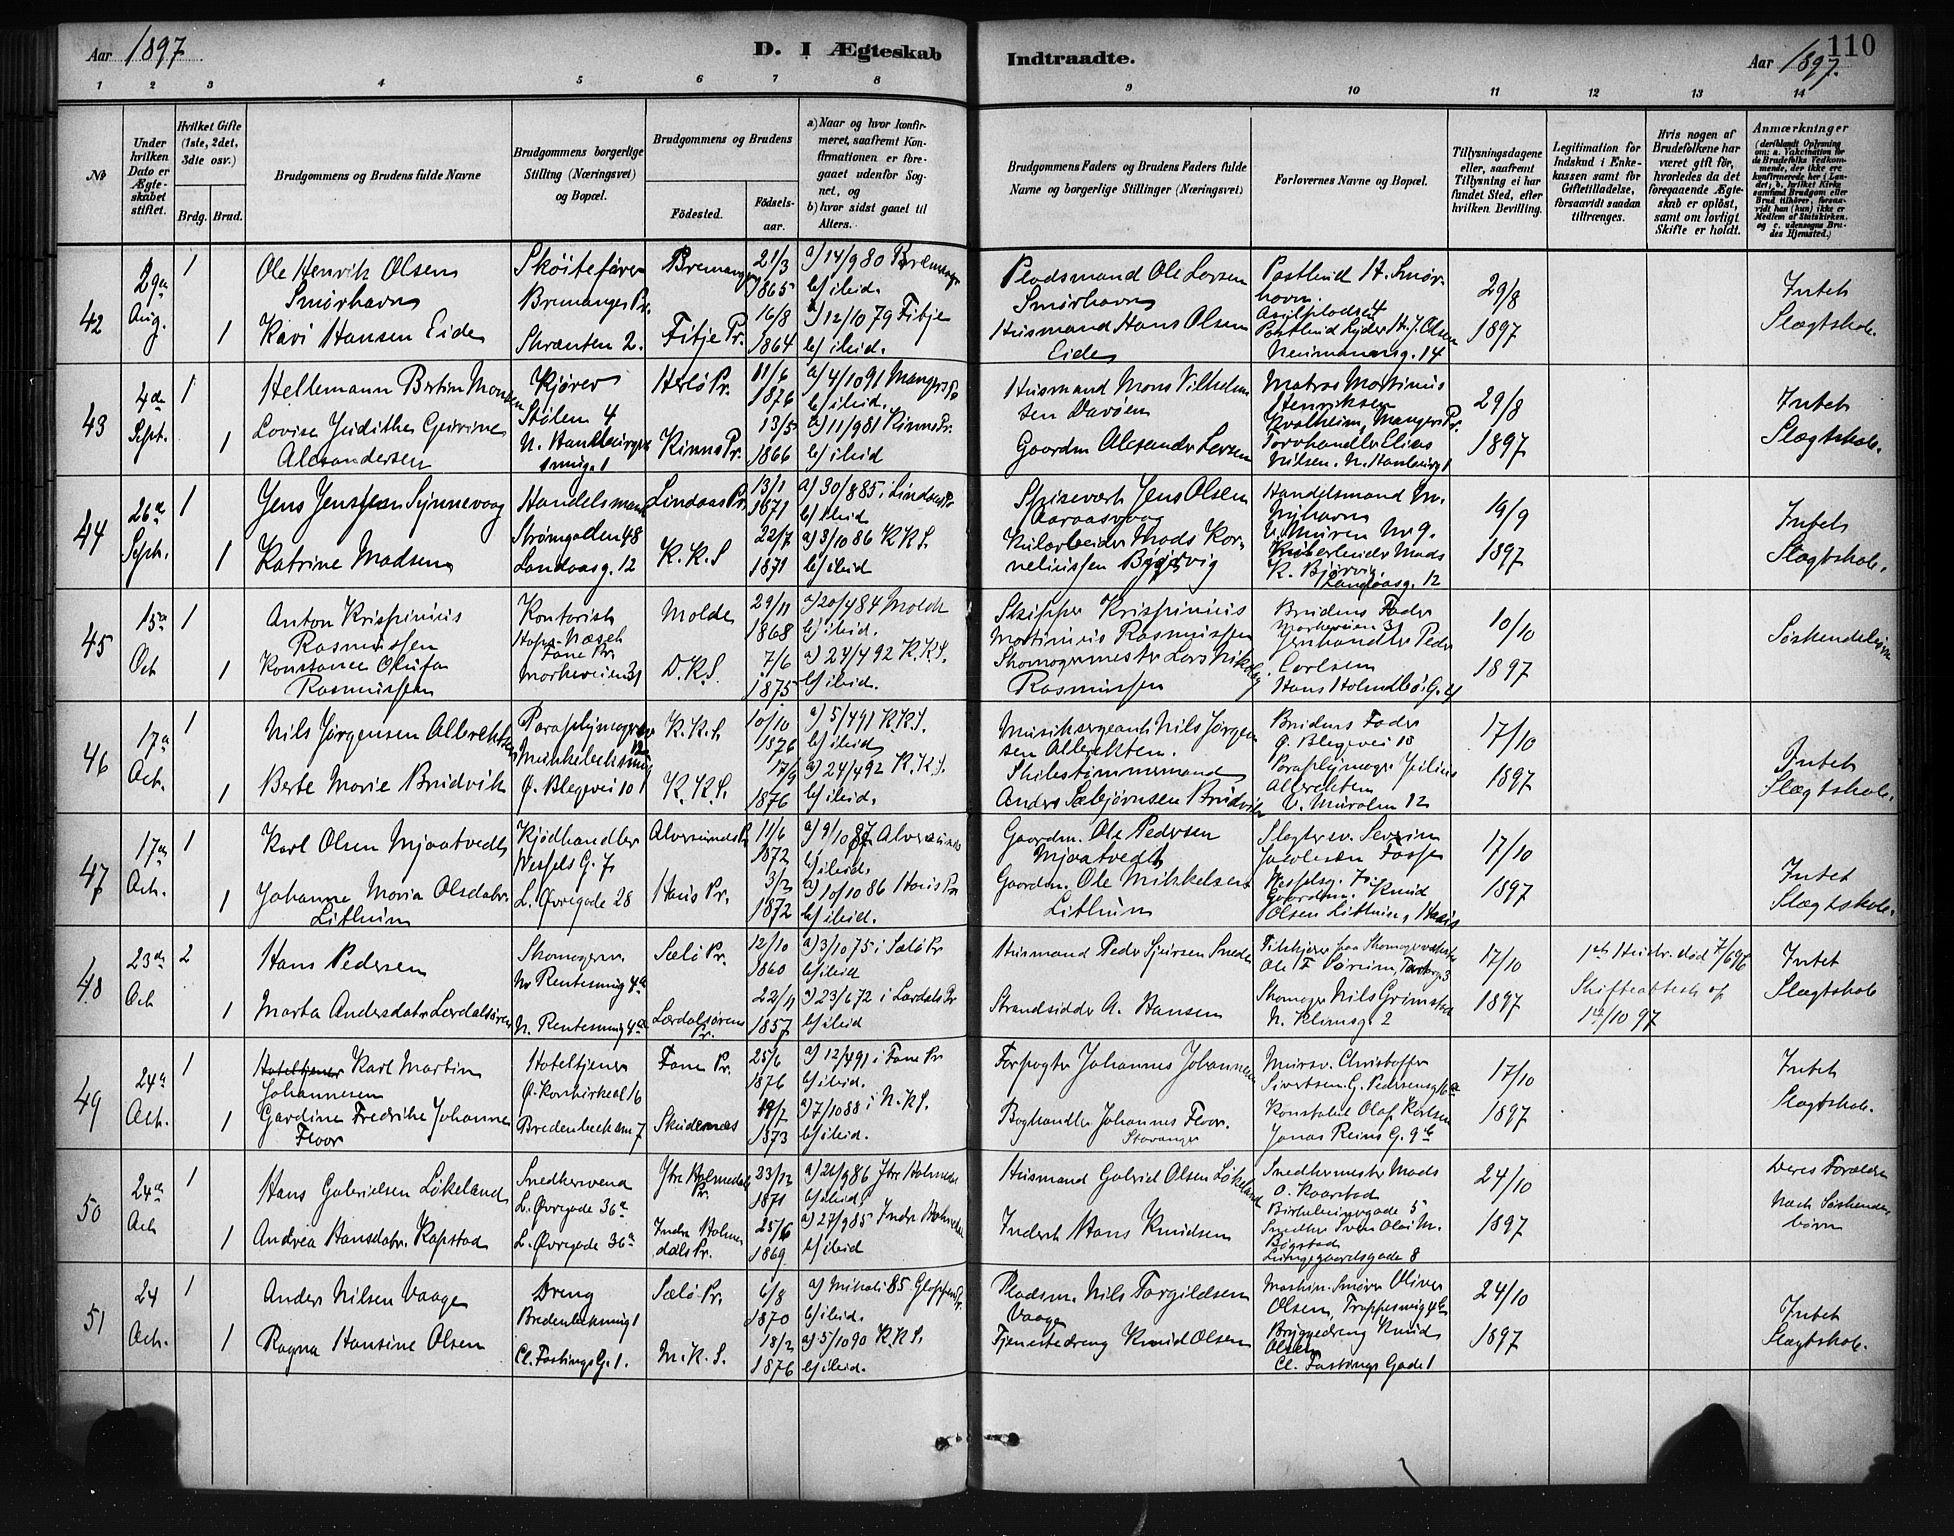 Aar 1897
D. I Ægteskab
Indtraadte.
110
Aar 1897.
1 2 3 4 5 6 7 8 9 10 11 12 13 14
No
Under hvilken Dato er Ægteskabet stiftet.
Hvilket Gifte (1ste, 2det, 3die osv.)
Brdg. Brud.
Brudgommens og Brudens fulde Navne
Brudgommens borgerlige Stilling (Næringsvei) og Bopæl.
Brudgommens og Brudens
Fødested.
Fødselsaar.
a) Naar og hvor konfirmeret, saafremt Konfirmationen er foregaaet udenfor Sognet, og
b) hvor sidst gaaet til Alters.
Brudgommens Faders og Brudens Faders fulde Navne og borgerlige Stillinger (Næringsvei)
Forlovernes Navne og Bopæl.
Tillysningsdagene eller, saafremt Tillysning ei har fundet Sted, efter hvilken Bevilling.
Legitimation for Indskud i Enkekassen samt for Giftetilladelse, forsaavidt saadan tiltrænges.
Hvis nogen af Brudefolkene har været gift før, hvorledes da det foregaaende Ægteskab er opløst, samt om lovligt Skifte er holdt.
Anmærkninger (deriblandt Oplysning om: a. Vakcination for de Brudefolks Vedkommende, der ikke ere konfirmerede her i Landet; b. hvilket Kirkesamfund Brudgom eller Brud tilhører, forsaavidt han (hun) ikke er Medlem af Statskirken. og c. udensogns Brudes Hjemsted.)
42
29de Aug.
1
Ole Henrik Olsen
Smørhavn
1
Kari Hansen Eide
Skøitefører
Bremanger Pr.
Skranten 2.
Bremanger
Fitje Pr.
21/3
1865
16/8
1864
a) 14/9 80 Bremanger
b) ileid.
a) 12/10 79 Fitje
b) ileid.
Pladsmand Ole Larsen
Smørhavn
Husmand Hans Olsen
Eide
Postbud H. Smørhavn.
Asylpladset 4
Postbud Ryder H. J. Olsen
Neumannsg. 14
29/8
1897
Intet
Slægtskab
43
4de Sept.
1
Heltemann Bertin Monsen
1
Lovise Judithe Gurine
Alexandersen
Kjører
Stølen 4
N. Hambürger
smug 1
Herlø Pr.
Kinns Pr.
11/6
1876
13/5
1866
a) 4/10 91 Manger Pr
b) ileid.
a) 11/9 81 Kinns Pr.
b) ileid
Husmand Mons Vilhelmsen Davøen
Gaardm Alexander Larsen
Matros Martinius
Henriksen
Kvalheim, Mangers Pr.
Torvhandler Elias
Nilsen. N. Hamburg 1
29/8
1897
Intet
Slægtskab.
44
26de Sept.
1
Jens Jenssen Synnevaag
1
Katrine Madsen
Handelsmand
Strømgaden 48
Landaasg. 12
Lindaas Pr.
K. K. S
13/1
1871
22/7
1871
a) 30/8 85 i Lindaas Pr
b) ileid
a) 3/10 86 K K S.
b) ileid
Spisevært Jens Olsen
Aaraasvaag
Kularbeider Mads Kornelinssen Bjørvig
Handelsmand M.
Myhavn
V. Muren Nr 9.
Kularbeider Mads
K. Bjørvig
Landaasg. 12
19/9
1897
Intet
Slægtskab.
45
15de Oct
1
Anton Krispinius
Rasmussen
1
Konstance Olufa
Rasmussen
Kontorist
Hops-Næset
Fane Pr.
Markeveien 31
Molde
D.K.S.
29/11
1868
7/6
1875
a) 20/4 84 Molde
b) ileid.
a) 24/4 92 K.K.S.
b) ileid.
Skipper Krispinius
Martinius Rasmussen
Skomagermester Lars Nikolay
Rasmussen
Brudens Fader
Markeveien 31
Jernhandler Peder
Carlsen
Hans Holmboes G. 4
10/10
1897
Søskendebørn
46
17de Oct.
1
Nils Jørgensen Albrektsen
1
Berte Marie Brudvik
Paraplymager
Minkebæksmug 12
Ø. Blegevei 10
K.K.S.
K.K.S.
10/10
1876
17/9
1876
a) 5/4 91 K.K.S.
b) ileid
a) 24/4 92 K.K.S.
b) ileid.
Musiksergeant Nils Jørgensen Albrekten.
Skibstømmermand
Anders Sæbjørnsen Brudvik
Brudens Fader
Ø. Blegevei 10
Paraplymager Julius
Albrekten
V. Muralm 12
17/10
1897
Intet
Slægtskab.
47
17de Oct.
1
Karl Olsen Mjaatvedt
1
Johanne Maria Olsdatr.
Lithun
Kjødhandler
Wessels G. 7
L. Øvregade 28
Alversunds Pr
Haus Pr.
11/6
1872
3/2
1872
a) 9/10 87 Alversunds
b) ileid.
a) 10/10 86 Haus Pr
b) ileid.
Gaardm. Ole Pedersen
Mjaatvedt
Gaardm. Ole Mikkelsen
Lithun
Slagtersv. Severin
Jakobsen Fosse
Wesselsg. 7
Gaardm. Knud
Olsen Lithun, Haus
17/10
1897
Intet
Slægtskab.
48
23de Oct
2
Hans Pedersen
1
Marta Andersdatr. Lærdalsøren
Skomagerm.
N. Rentesmug 4a
N. Rentesmug 4a
Sælø Pr.
Lærdalsørens Pr.
12/10
1860
22/11
1857
a) 3/10 75 i Sælø Pr
b) ileid
a) 23/6 72 i Lærdals Pr
b) ileid
Husmand Peder Sjursen
Strandsidder A. Hansen
Ole F. Sørum, Torvg. 3
Skomager Nils Grimstad
N. Klemsg. 2
17/10
1897
1ste Hustr. død 7/6 96
Skifteattest af
1ste/10 97
Intet
Slægtskab
49
24de Oct.
1
Hoteltjener Karl Martin
Johannesen
1
Gardine Fredrike Johanne
Floor
Hoteltjener
Ø. Korskirkeal 16
Bredenbeck am 7
Fane Pr.
Skudenæs
25/6
1876
19/2
1873
a) 12/4 91 i Fane Pr
b) ileid.
a) 7/10 88 i N.K.S.
b) ileid.
Forpagter Johannes Johannesen
Boghandler Johannes Floor.
Stavanger
Mursv. Christoffer
Sivertsen. G. Pedersensg 16a
Konstabel Olaf Karlsen
Jonas Reins G. 9b
17/10
1897
Intet
Slægtskab.
50
24de Oct
1
Hans Gabrielsen Løkeland
1
Andrea Hansdatr. Kapstad
Snedkersvend
L. Øvregade 36a
L. Øvregade 36a
Ytre Holmedals Pr.
Indre Holmedals Pr.
23/12
1871
25/6
1869
a) 26/9 86 Ytre Holmedal
b) ileid.
a) 27/9 85 Indre Holmedal
b) ileid
Husmand Gabriel Olsen Løkeland
Inderst Hans Knudsen
Snedkermester Mads
O. Kaarstad
Birkebeinergade 5
Snedker Sven Olai M.
Bøgstad
Lungegaardsgade 8
24/10
1897
Deres Forældre
Søskendebørn
51
24 Oct.
1
Anders Nilsen Vaage
1
Ragna Hansine Olsen
Dreng
Bredenbecksmug 1
Cl. Fastings G. 1.
Sælø Pr.
M.K.S.
6/8
1870
18/2
1876
a) Mikali 85 Gloppens Pr.
b) ileid.
a) 5/10 90 K.K.S.
b) ileid.
Pladsm. Nils Torgildsen
Vaage
Tjenestedreng Knud Olsen
Maskin-Smører Oliver
Olsen, Trappesmug 4b
Bryggedreng Knud
Olsen
Cl. Fastings Gade 1
24/10
1897
Intet
Slægtskab.